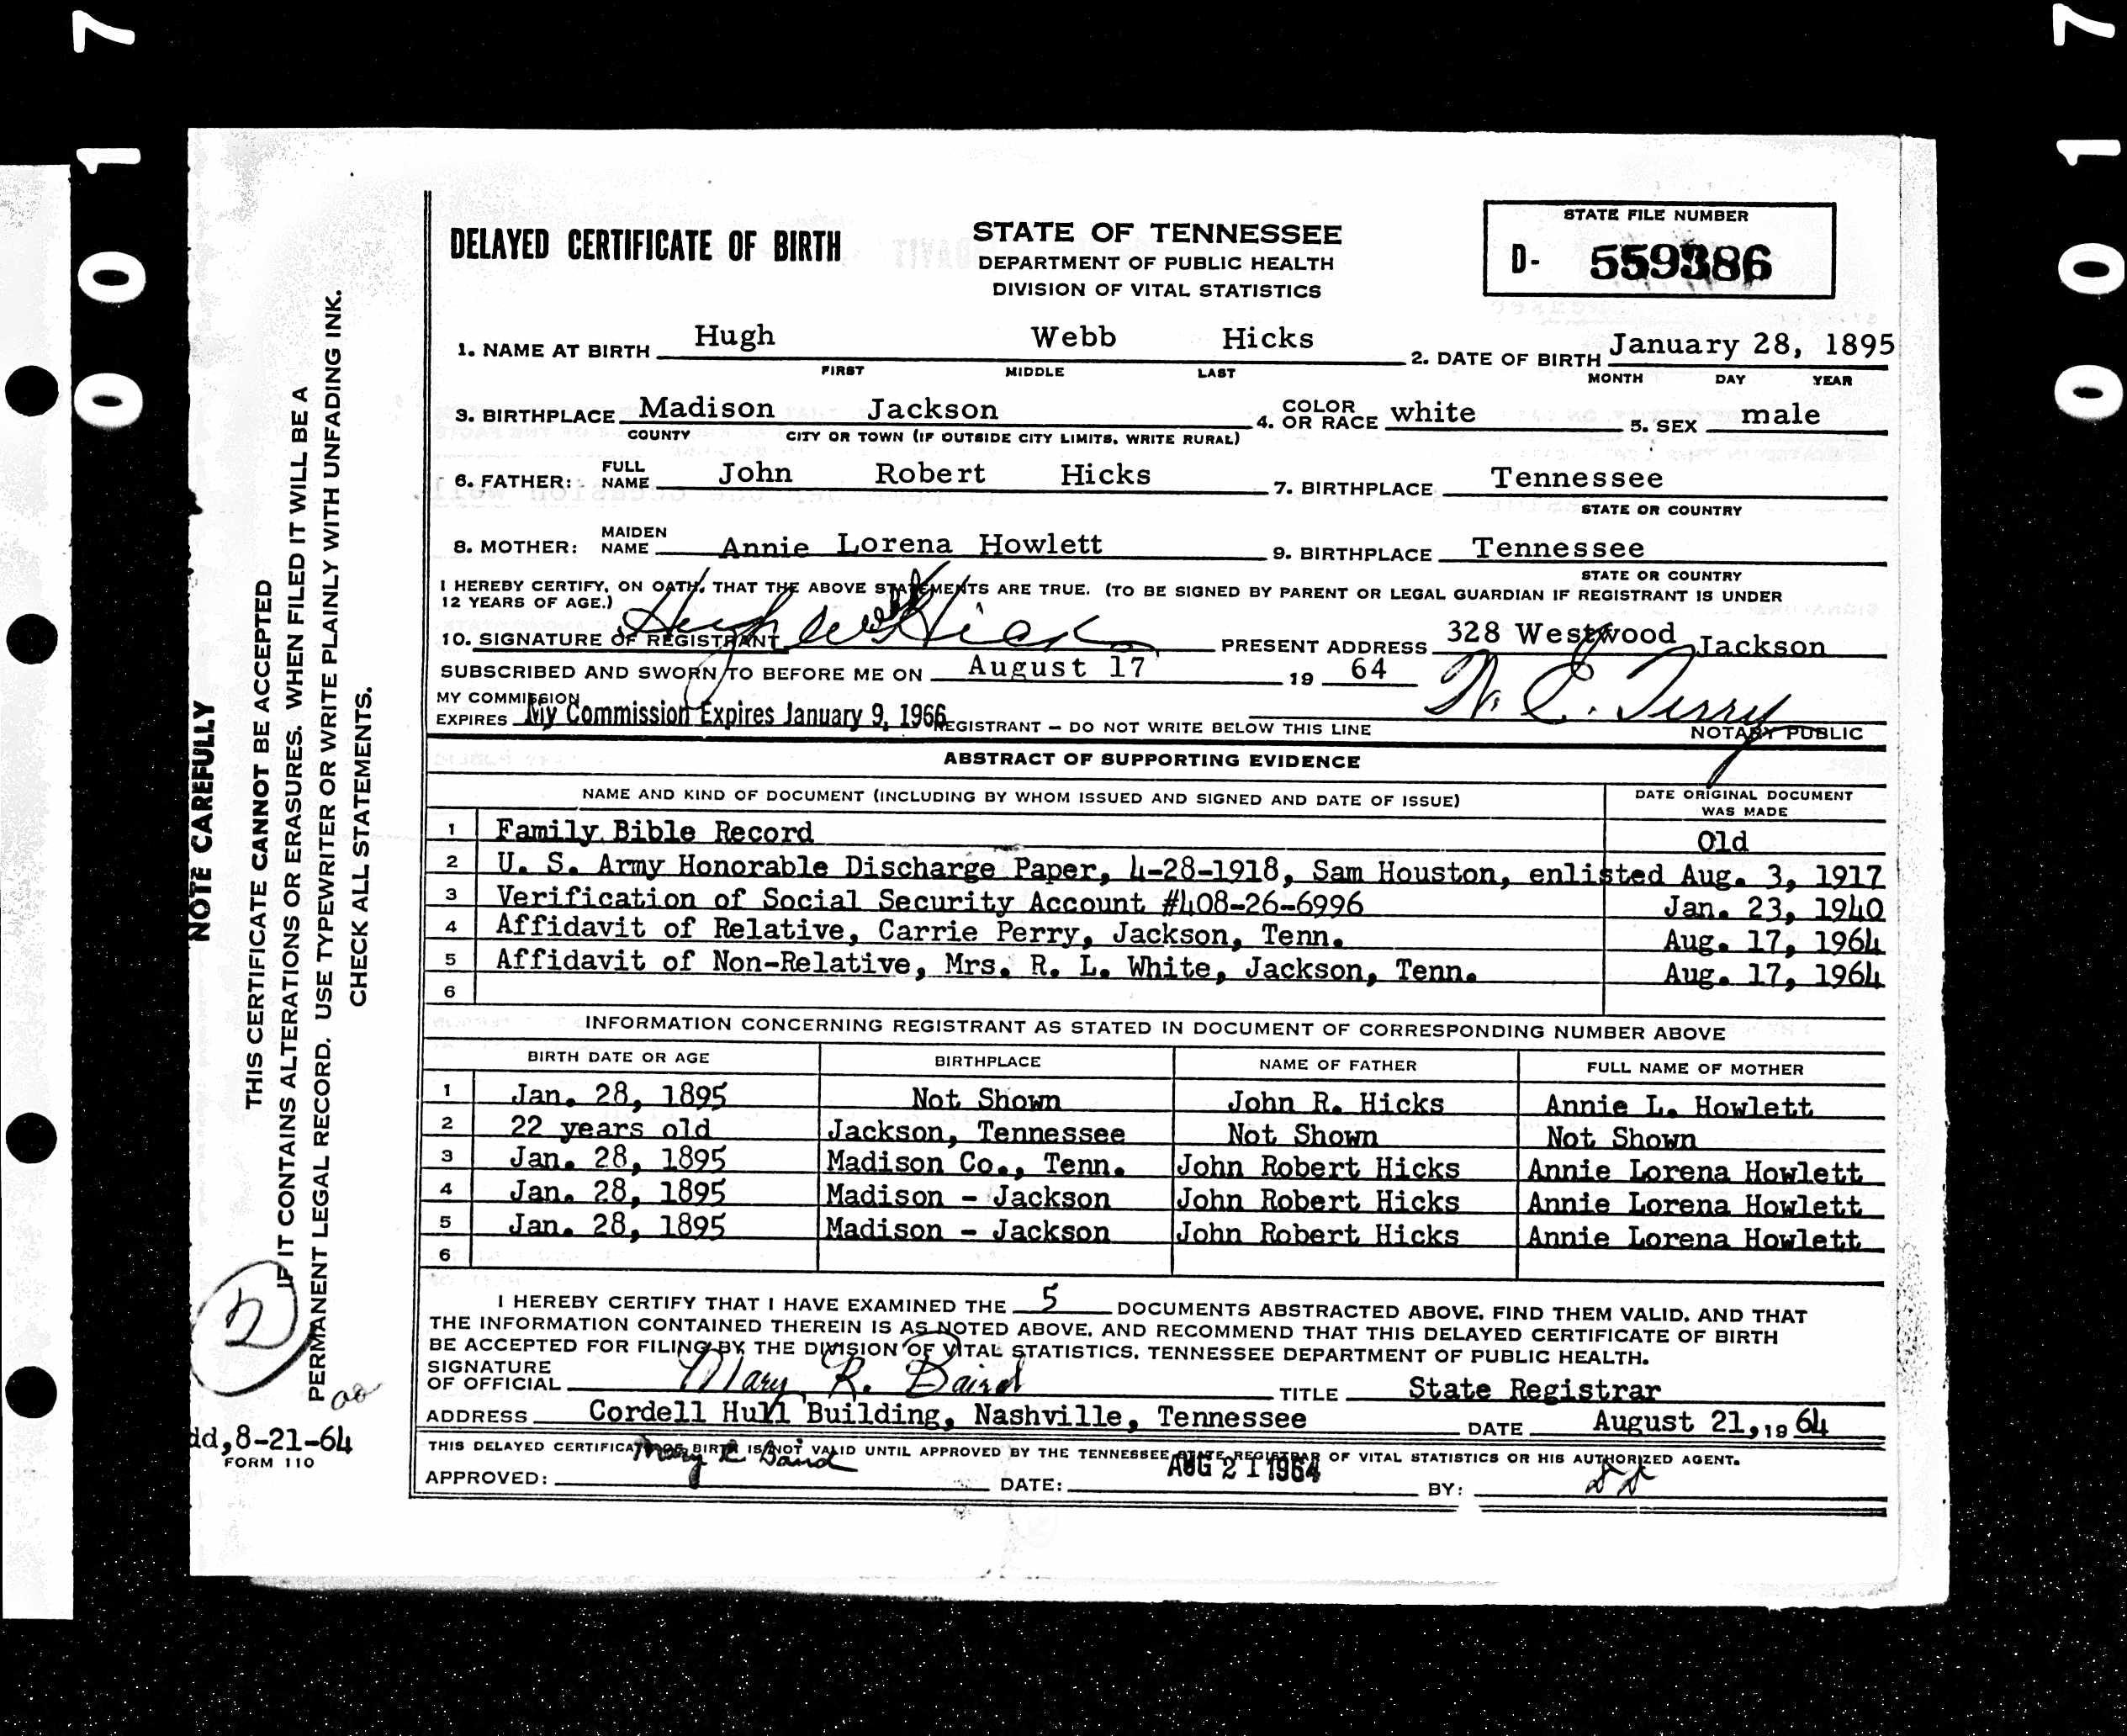 0017
0017
NOTE CAREFULLY
THIS CERTIFICATE CANNOT BE ACCEPTED
IF IT CONTAINS ALTERATIONS OR ERASURES. WHEN FILED IT WILL BE A
PERMANENT LEGAL RECORD. USE TYPEWRITER OR WRITE PLAINLY WITH UNFADING INK.
CHECK ALL STATEMENTS.
DELAYED CERTIFICATE OF BIRTH
STATE OF TENNESSEE
DEPARTMENT OF PUBLIC HEALTH
DIVISION OF VITAL STATISTICS
STATE FILE NUMBER
D- 559386
1. NAME AT BIRTH Hugh Webb Hicks 2. DATE OF BIRTH January 28, 1895
FIRST MIDDLE LAST MONTH DAY YEAR
3. BIRTHPLACE Madison Jackson 4. COLOR OR RACE white 5. SEX male
COUNTY CITY OR TOWN (IF OUTSIDE CITY LIMITS, WRITE RURAL)
6. FATHER: FULL NAME John Robert Hicks 7. BIRTHPLACE Tennessee
STATE OR COUNTRY
8. MOTHER: MAIDEN NAME Annie Lorena Howlett 9. BIRTHPLACE Tennessee
STATE OR COUNTRY
I HEREBY CERTIFY, ON OATH, THAT THE ABOVE STATEMENTS ARE TRUE. (TO BE SIGNED BY PARENT OR LEGAL GUARDIAN IF REGISTRANT IS UNDER
12 YEARS OF AGE.)
10. SIGNATURE OF REGISTRANT Hugh Webb Hicks PRESENT ADDRESS 328 Westwood, Jackson
SUBSCRIBED AND SWORN TO BEFORE ME ON August 17 19 64
MY COMMISSION
EXPIRES My Commission Expires January 9, 1966 REGISTRANT - DO NOT WRITE BELOW THIS LINE
W. C. Terry
NOTARY PUBLIC
ABSTRACT OF SUPPORTING EVIDENCE
NAME AND KIND OF DOCUMENT (INCLUDING BY WHOM ISSUED AND SIGNED AND DATE OF ISSUE) DATE ORIGINAL DOCUMENT WAS MADE
1 Family Bible Record Old
2 U. S. Army Honorable Discharge Paper, 4-28-1918, Sam Houston, enlisted Aug. 3, 1917
3 Verification of Social Security Account #408-26-6996 Jan. 23, 1940
4 Affidavit of Relative, Carrie Perry, Jackson, Tenn. Aug. 17, 1964
5 Affidavit of Non-Relative, Mrs. R. L. White, Jackson, Tenn. Aug. 17, 1964
6
INFORMATION CONCERNING REGISTRANT AS STATED IN DOCUMENT OF CORRESPONDING NUMBER ABOVE
BIRTH DATE OR AGE BIRTHPLACE NAME OF FATHER FULL NAME OF MOTHER
1 Jan. 28, 1895 Not Shown John R. Hicks Annie L. Howlett
2 22 years old Jackson, Tennessee Not Shown Not Shown
3 Jan. 28, 1895 Madison Co., Tenn. John Robert Hicks Annie Lorena Howlett
4 Jan. 28, 1895 Madison - Jackson John Robert Hicks Annie Lorena Howlett
5 Jan. 28, 1895 Madison - Jackson John Robert Hicks Annie Lorena Howlett
6
I HEREBY CERTIFY THAT I HAVE EXAMINED THE 5 DOCUMENTS ABSTRACTED ABOVE, FIND THEM VALID, AND THAT
THE INFORMATION CONTAINED THEREIN IS AS NOTED ABOVE, AND RECOMMEND THAT THIS DELAYED CERTIFICATE OF BIRTH
BE ACCEPTED FOR FILING BY THE DIVISION OF VITAL STATISTICS, TENNESSEE DEPARTMENT OF PUBLIC HEALTH.
SIGNATURE
OF OFFICIAL Mary R. Baird TITLE State Registrar
ADDRESS Cordell Hull Building, Nashville, Tennessee DATE August 21, 19 64
THIS DELAYED CERTIFICATE OF BIRTH IS NOT VALID UNTIL APPROVED BY THE TENNESSEE STATE REGISTRAR OF VITAL STATISTICS OR HIS AUTHORIZED AGENT.
APPROVED: Mary R Baird DATE: AUG 21 1964 BY:
dd, 8-21-64
FORM 110